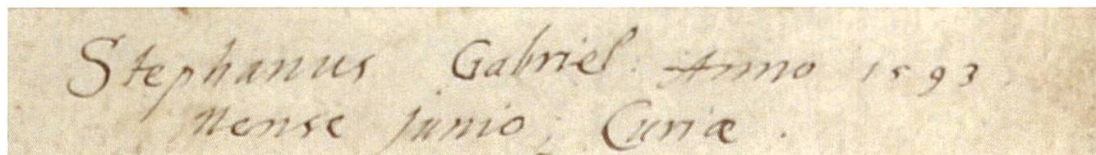 Stephanus Gabriel. Anno 1593.
Mense junio, Curiæ.